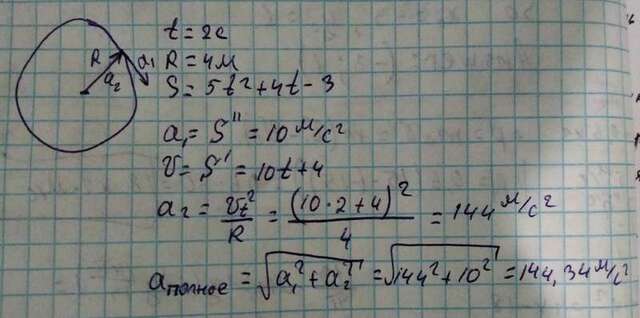 t = 2c
R a₁ R = 4м
a₂ S = 5t² + 4t - 3
a₁ = S'' = 10 м/с²
v = S' = 10t + 4
a₂ = vt²/R = (10·2+4)²/4 = 144 м/с²
a полное = √(a₁² + a₂²) = √(144² + 10²) = 144,34 м/с²